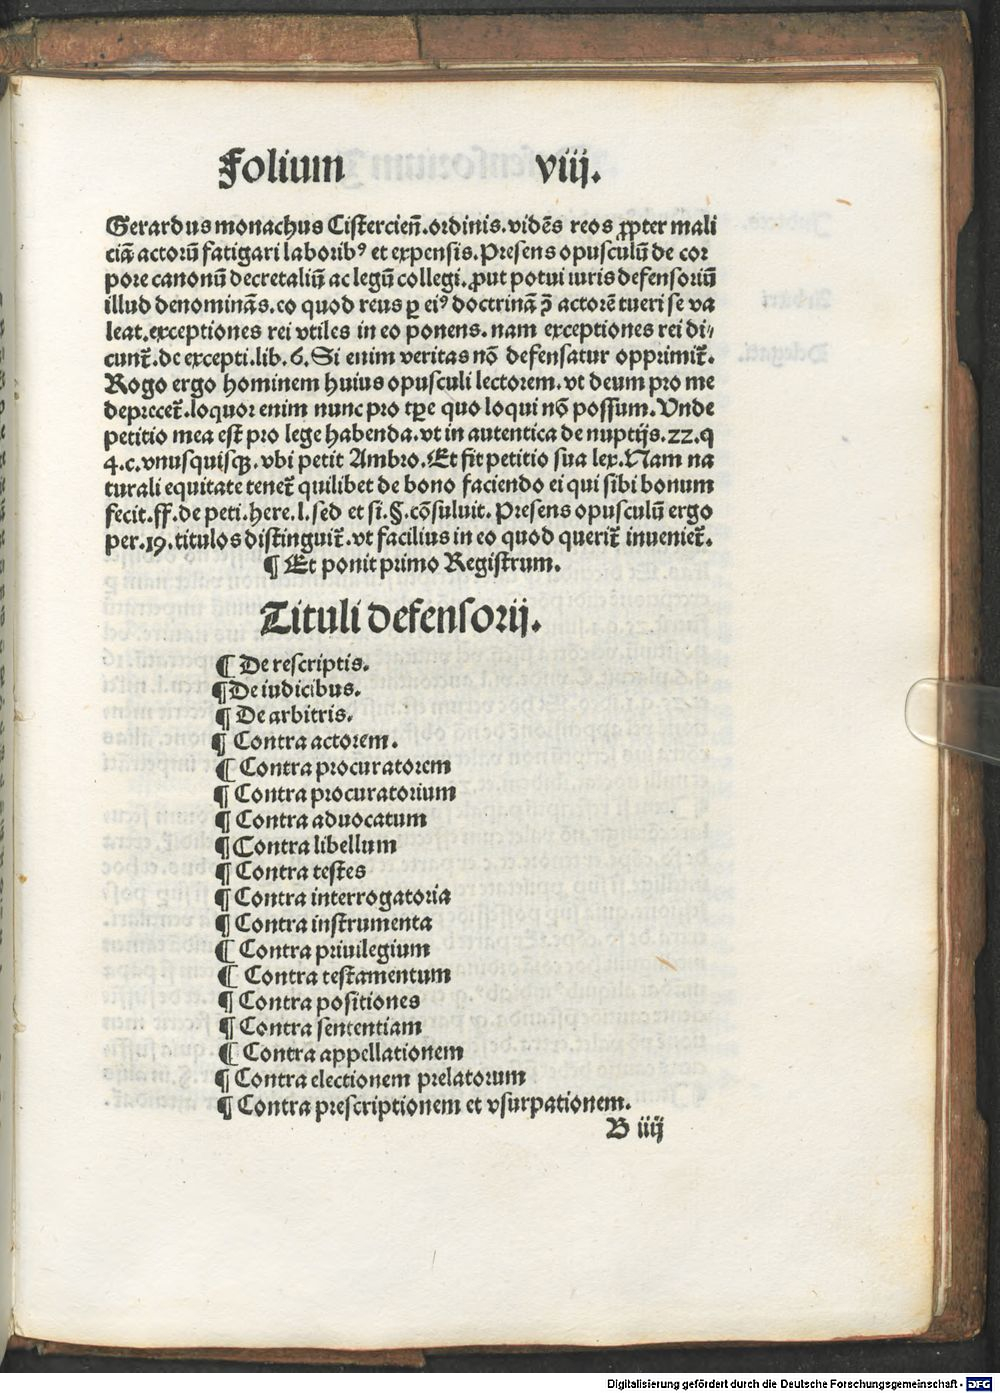 Folium viij.
Gerardus monachus Cistercieñ.ordinis.vidēs reos ꝓpter mali
ciã actorũ fatigari laboribꝰ et expensis.Presens opusculũ de cor
pore canonũ decretaliũ ac legũ collegi.ꝓut potui iuris defensoriũ
illud denominãs.eo quod reus ꝑ eiꝰ doctrinã ꝯ̃ actorē tueri se va
leat.exceptiones rei vtiles in eo ponens.nam exceptiones rei di⸗
cunt̃.de excepti.lib.6.Si enim veritas nõ defensatur opprimit̃.
Rogo ergo hominem huius opusculi lectorem.vt deum pro me
deprecet̃.loquor enim nunc pro tꝑe quo loqui nõ possum.Vnde
petitio mea est pro lege habenda.vt in autentica de nuptijs.22.q
4.c.vnusquisqꝫ.vbi petit Ambro.Et fit petitio sua lex.Nam na
turali equitate tenet̃ quilibet de bono faciendo ei qui sibi bonum
fecit.ff.de peti.here.l.sed et si.§.cõsuluit.Presens opusculũ ergo
per.19.titulos distinguit̃.vt facilius in eo quod querit̃ inueniet̃.
¶ Et ponit primo Registrum.
Tituli defensorij.
¶ De rescriptis.
¶ De iudicibus.
¶ De arbitris.
¶ Contra actorem.
¶ Contra procuratorem
¶ Contra procuratorium
¶ Contra aduocatum
¶ Contra libellum
¶ Contra testes
¶ Contra interrogatoria
¶ Contra instrumenta
¶ Contra priuilegium
¶ Contra testamentum
¶ Contra positiones
¶ Contra sententiam
¶ Contra appellationem
¶ Contra electionem prelatorum
¶ Contra prescriptionem et vsurpationem.
B iiij
Digitalisierung gefördert durch die Deutsche Forschungsgemeinschaft - DFG